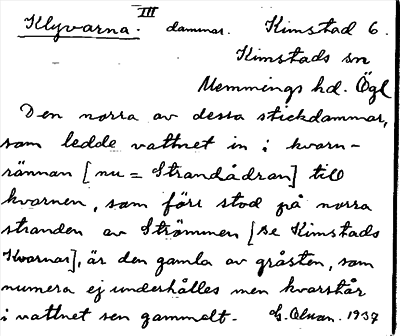 Klyvarna. III dammar. Kimstad 6.
Kimstads sn
Memmings hd. Ögl
Den norra av dessa stickdammar,
som ledde vattnet in i kvarn-
rännan [nu = Strandådran] till
kvarnen, som förr stod på norra
stranden av Strömmen [se Kimstads
Kvarnar], är den gamla av gråsten, som
numera ej underhålles men kvarstår
i vattnet sen gammalt. 1937